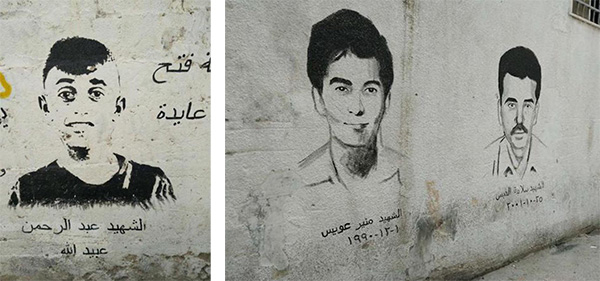 فتح
عايدة
الشهيد عبد الرحمن
عبيد الله
الشهيد منير عويس
١٩٩٠-١٢-١
الشهيد سلامة الدبس
٢٠٠١-١٠-٢٥